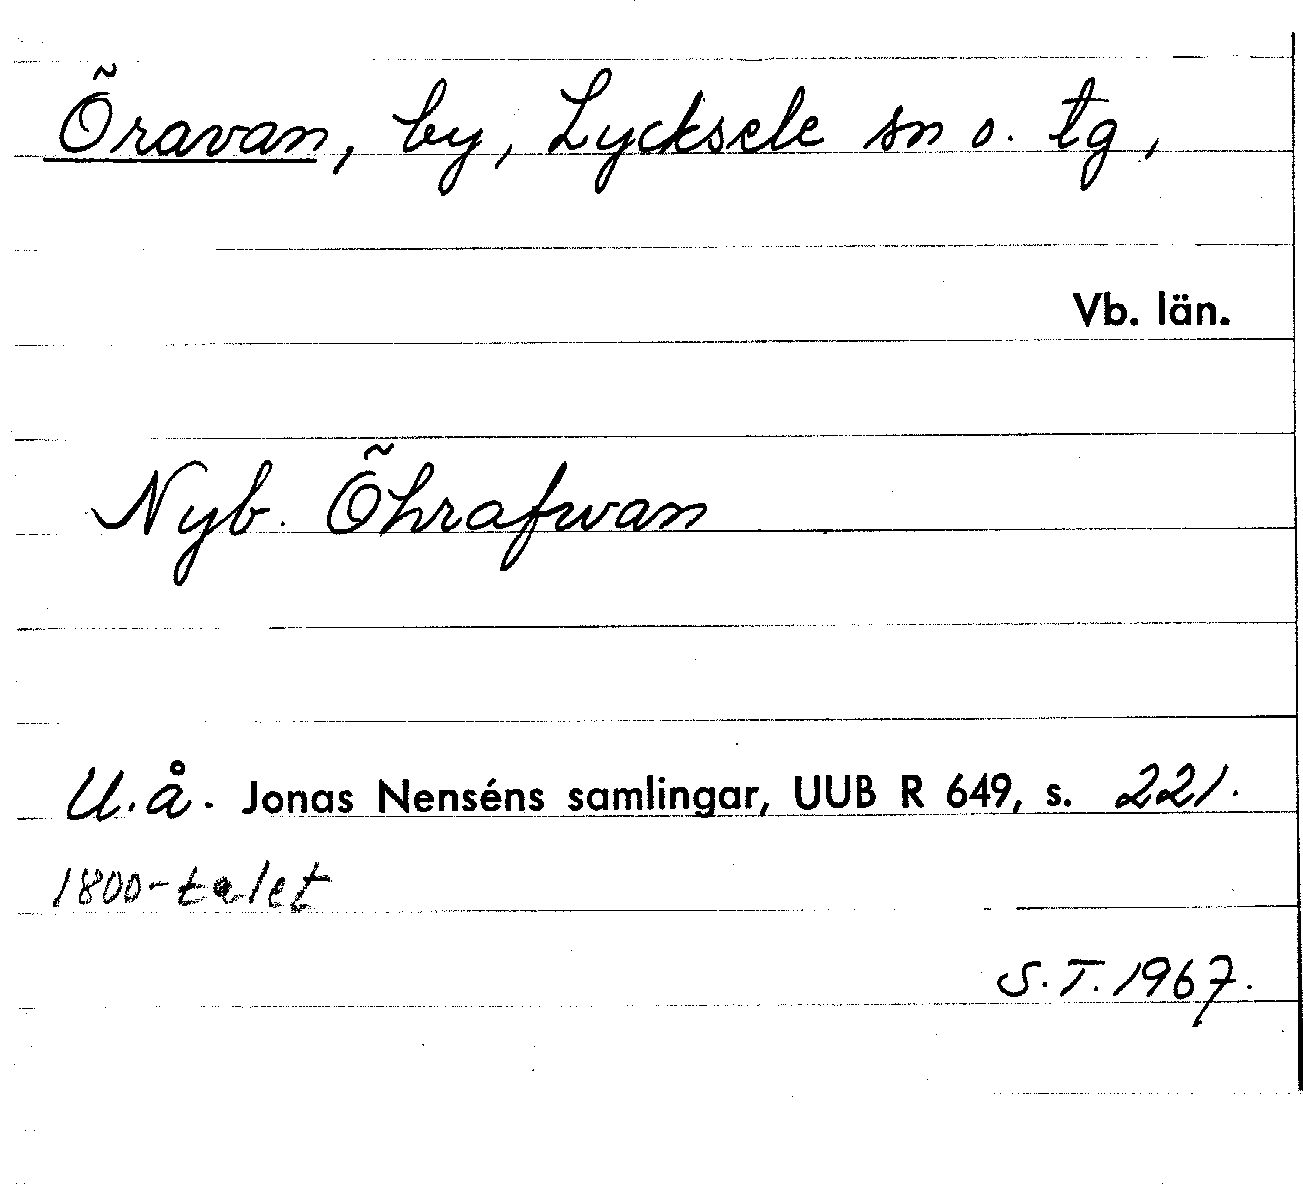 Õravan, by, Lycksele sn o. tg,
Vb. län.
Nyb. Õhrafwan
U.å. Jonas Nenséns samlingar, UUB R 649, s. 221.
1800-talet
S.T. 1967.